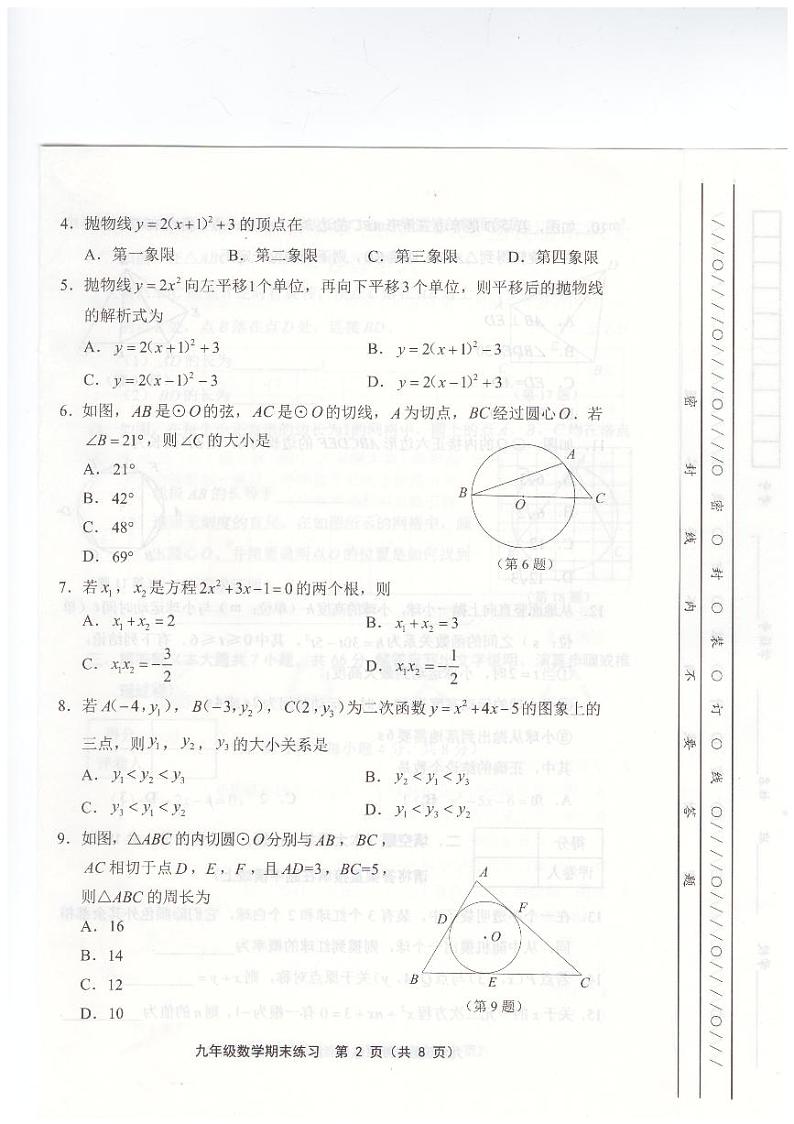 4．抛物线 y = 2(x+1)² + 3 的顶点在
A．第一象限 B．第二象限 C．第三象限 D．第四象限
5．抛物线 y = 2x² 向左平移1个单位，再向下平移3个单位，则平移后的抛物线
的解析式为
A．y = 2(x+1)² + 3 B．y = 2(x+1)² − 3
C．y = 2(x−1)² − 3 D．y = 2(x−1)² + 3
6．如图，AB是⊙O的弦，AC是⊙O的切线，A为切点，BC经过圆心O．若
∠B = 21°，则∠C的大小是
A．21°
B．42°
C．48°
D．69°
A
B
O
C
（第 6 题）
7．若 x₁，x₂ 是方程 2x² + 3x − 1 = 0 的两个根，则
A．x₁ + x₂ = 2 B．x₁ + x₂ = 3
C．x₁x₂ = − 3/2 D．x₁x₂ = − 1/2
8．若 A(−4, y₁)，B(−3, y₂)，C(2, y₃)为二次函数 y = x² + 4x − 5 的图象上的
三点，则 y₁，y₂，y₃ 的大小关系是
A．y₁ < y₂ < y₃ B．y₂ < y₁ < y₃
C．y₃ < y₁ < y₂ D．y₁ < y₃ < y₂
9．如图，△ABC的内切圆⊙O分别与AB，BC，
AC相切于点D，E，F，且AD=3，BC=5，
则△ABC的周长为
A．16
B．14
C．12
D．10
A
D
F
O
B
E
C
（第 9 题）
九年级数学期末练习 第 2 页（共 8 页）
密 封 线 内 不 要 答 题
密 〇 封 〇 装 〇 订 〇 线